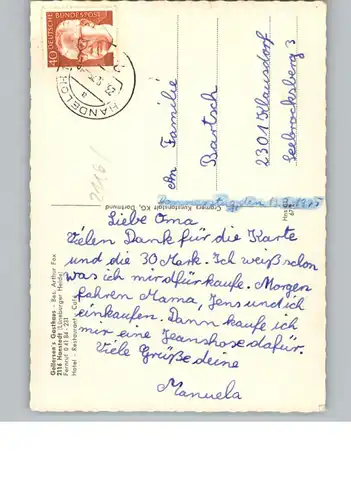 Liebe Oma
Vielen Dank für die Karte
und die 30 Mark. Ich weiß schon
was ich mir dfür kaufe. Morgen
fahren Mama, Jens und ich
einkaufen. Dann kaufe ich
mir eine Jeanshose dafür.
Viele Grüße deine
Manuela
An Familie
Bartsch
2301 Klausdorf
Seebrocksberg 3
Donnerstag, den 13.3.1975
DEUTSCHE BUNDESPOST
40
HANDELOH
a
Cramers Kunstanstalt KG, Dortmund
Gellersen's Gasthaus - Bes. Arthur Fox
2116 Hanstedt (Lüneburger Heide)
Fernruf 0 41 84 - 233
Hotel - Restaurant - Café